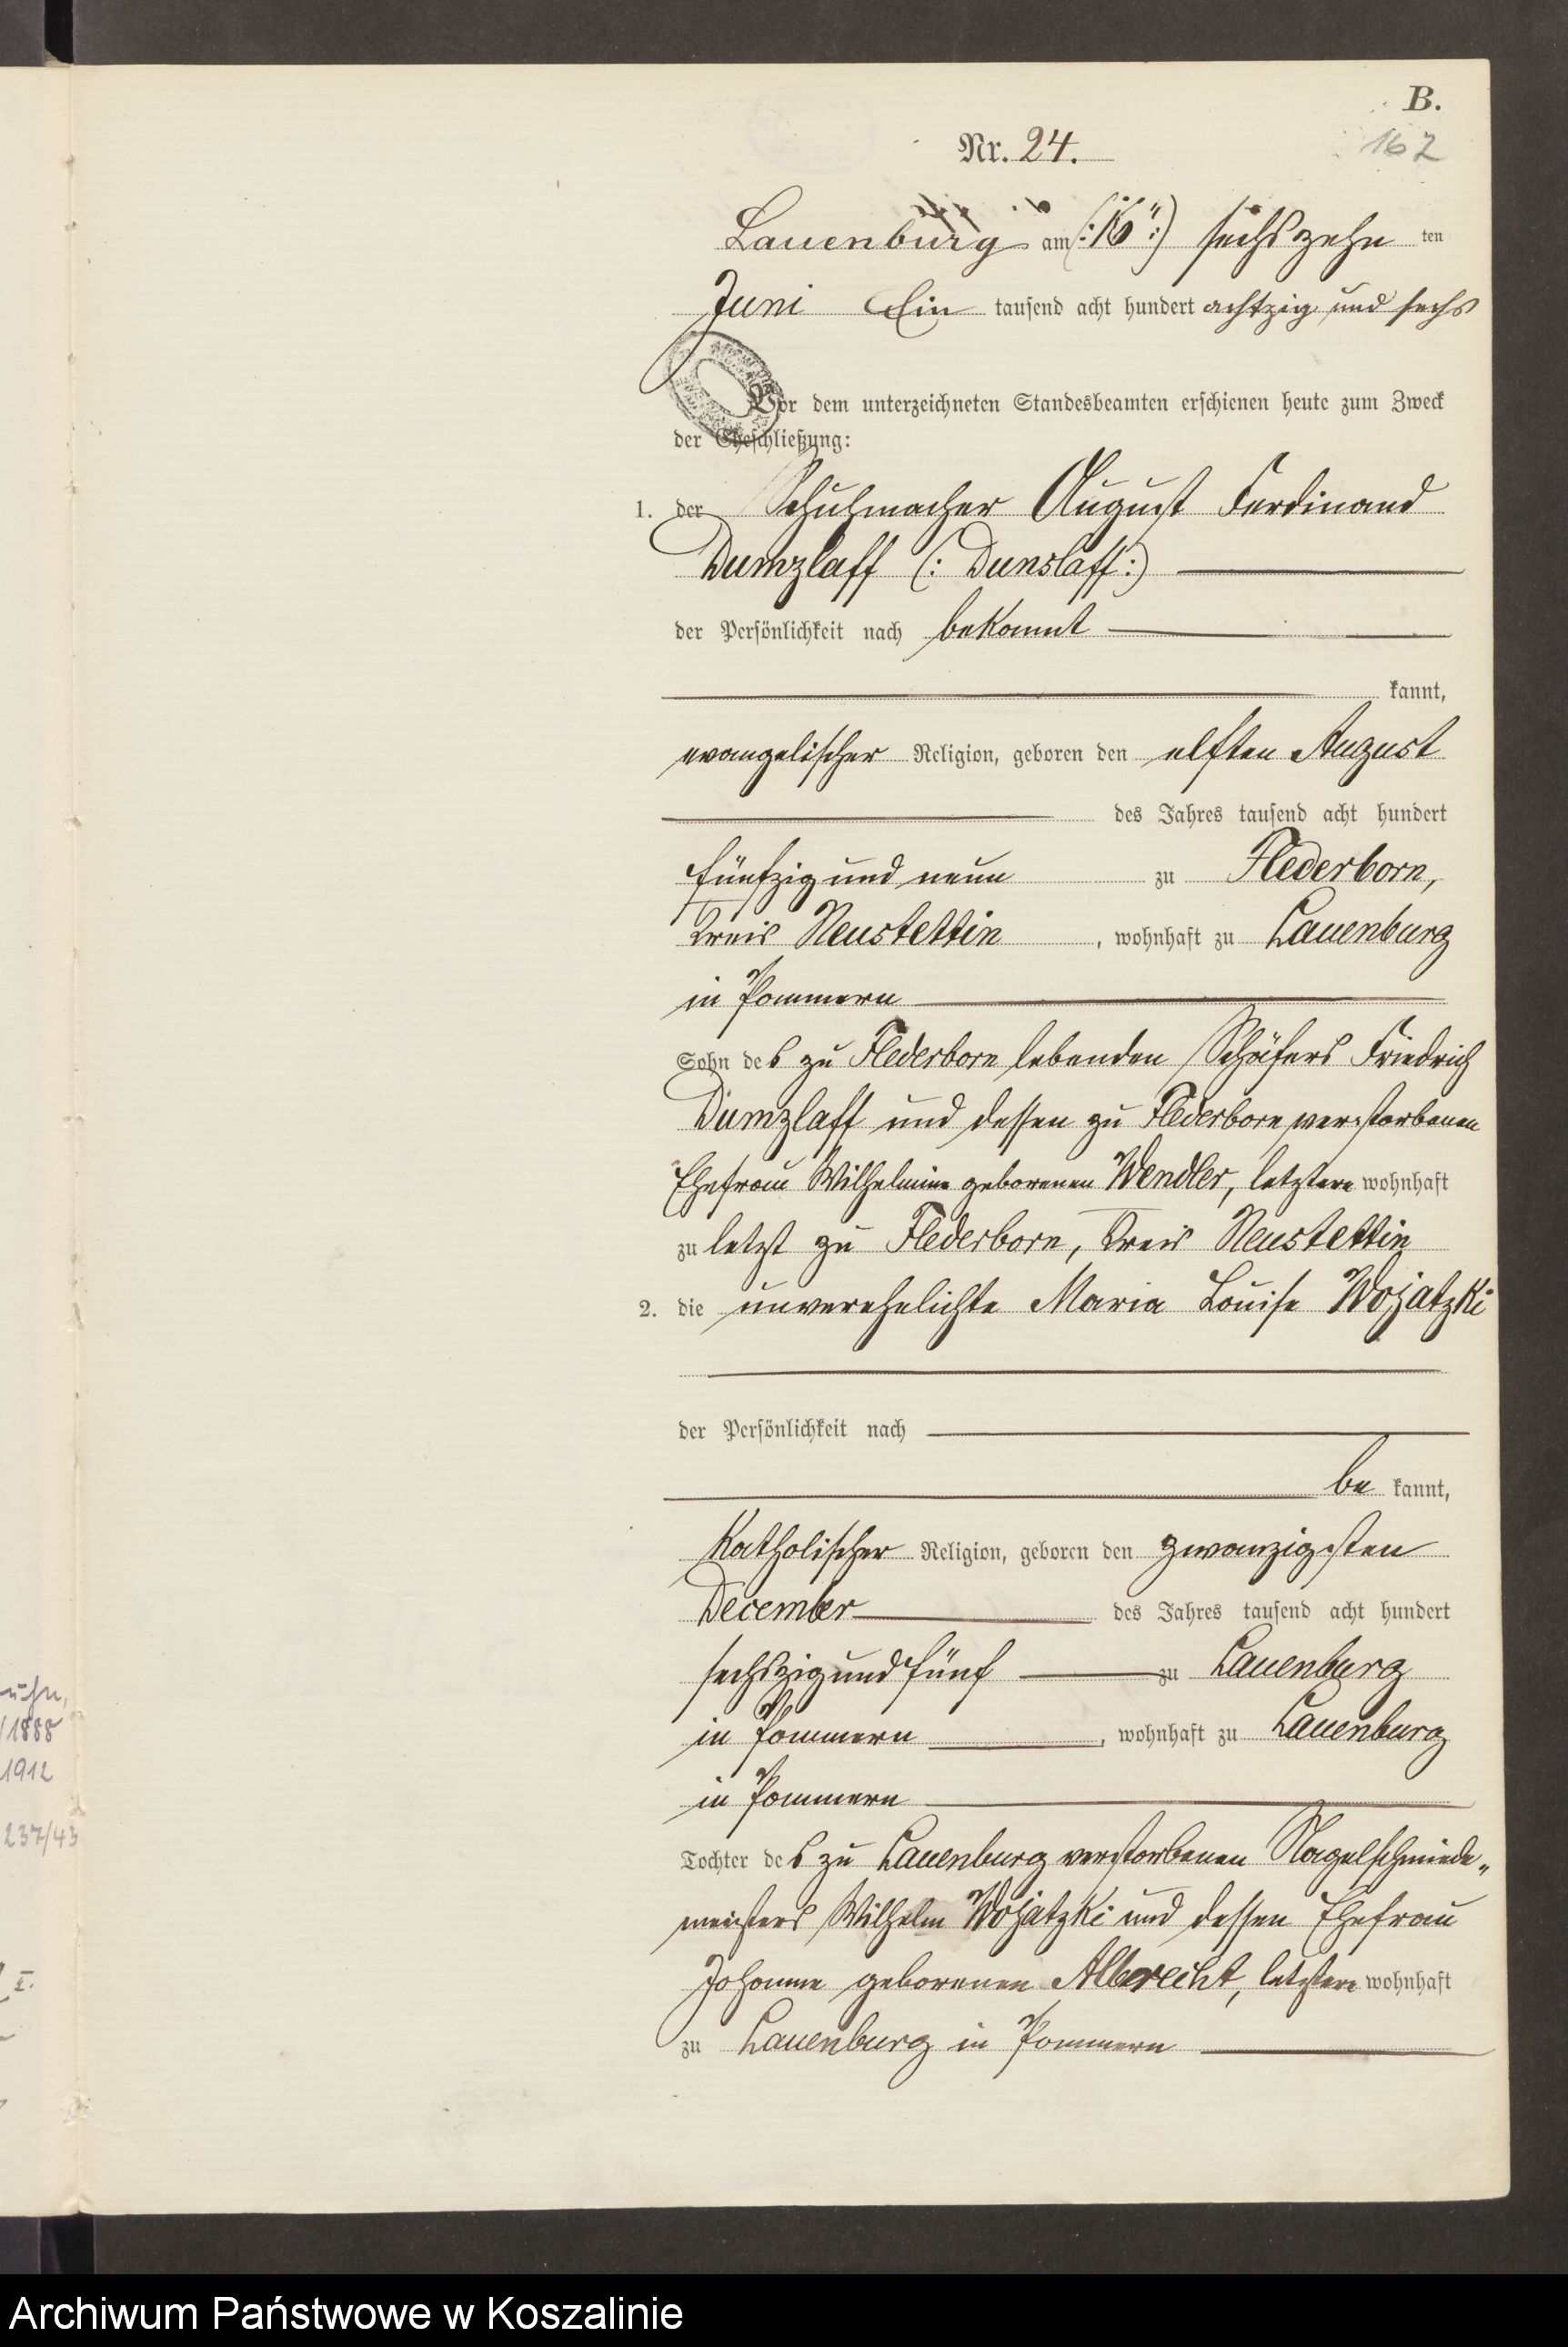 B.
Nr. 24.
162
Lauenburg am (: 16 :) sechszehn ten
Juni Ein tausend acht hundert achtzig und sechs
Vor dem unterzeichneten Standesbeamten erschienen heute zum Zweck
der Eheschließung:
1. der Schuhmacher August Ferdinand
Dumzlaff (: Dunslaff :)
der Persönlichkeit nach bekannt
kannt,
evangelischer Religion, geboren den elften August
des Jahres tausend acht hundert
fünfzig und neun zu Flederborn,
Kreis Neustettin, wohnhaft zu Lauenburg
in Pommern
Sohn des zu Flederborn lebenden Schäfers Friedrich
Dumzlaff und dessen zu Flederborn verstorbenen
Ehefrau Wilhelmine geborenen Wendler, letztere wohnhaft
zu letzt zu Flederborn, Kreis Neustettin
2. die unverehelichte Maria Louise Wojatzki
der Persönlichkeit nach
be kannt,
Katholischer Religion, geboren den zwanzigsten
December des Jahres tausend acht hundert
sechszig und fünf zu Lauenburg
in Pommern, wohnhaft zu Lauenburg
in Pommern
Tochter des zu Lauenburg verstorbenen Nagelschmiede„
meisters Wilhelm Wojatzki und dessen Ehefrau
Johanne geborenen Albrecht, letztere wohnhaft
zu Lauenburg in Pommern
/1888
1912
237/43
I.
Archiwum Państwowe w Koszalinie